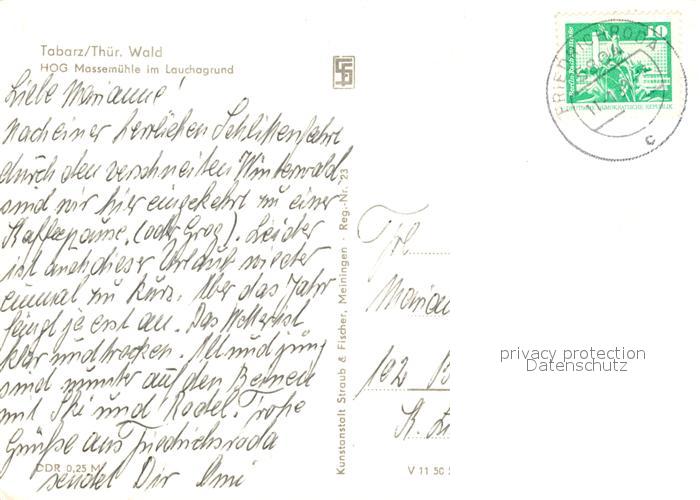 Tabarz/Thür. Wald
HOG Massemühle im Lauchagrund
Liebe Marianne!
Nach einer herrlichen Schlittenfahrt
durch den verschneiten Winterwald
sind wir hier eingekehrt zu einer
Kaffeepause, (oder Grog). Leider
ist auch dieser Urlaub wieder
einmal zu kurz. Aber das Jahr
fängt ja erst an. Das Wetter ist
klar und trocken. Alt und jung
sind munter auf den Beinen
mit Ski und Rodel. Frohe
Grüße aus Friedrichroda
sendet Dir Omi
DDR 0,25 M
Kunstanstalt Straub & Fischer, Meiningen · Reg.-Nr. 23
V 11 50
10
DEUTSCHE DEMOKRATISCHE REPUBLIK
FRIEDRICHRODA
c
Frl.
Marian
102 B
privacy protection
Datenschutz